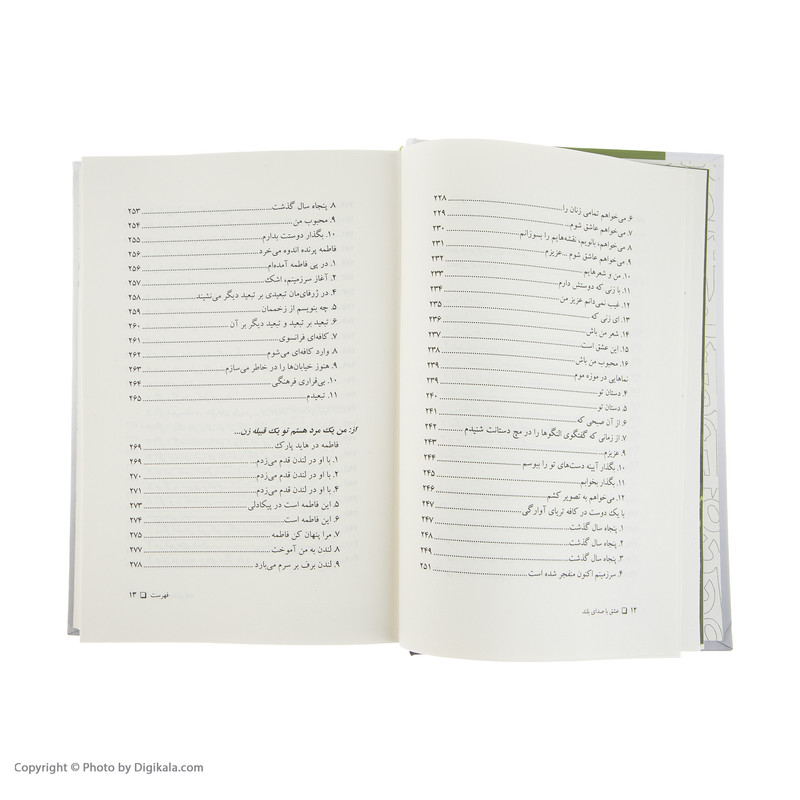 ۶. می‌خواهم تمامی زنان را ........ ۲۲۸
۷. می‌خواهم عاشق شوم... ........ ۲۲۹
۸. می‌خواهم، بانویم، نقشه‌هایم را بسوزانم ........ ۲۳۰
۹. می‌خواهم عاشق شوم ...عزیزم ........ ۲۳۱
۱۰. من و شعرهایم ........ ۲۳۲
۱۱. با زنی که دوستش دارم ........ ۲۳۳
۱۲. غیب نمی‌دانم عزیز من ........ ۲۳۴
۱۳. ای زنی که ........ ۲۳۵
۱۴. شعر من باش ........ ۲۳۶
۱۵. این عشق است ........ ۲۳۷
۱۶. محبوب من باش ........ ۲۳۸
نماهایی در موزه موم ........ ۲۳۹
۴. دستان تو ........ ۲۳۹
۵. دستان تو ........ ۲۴۰
۶. از آن صبحی که ........ ۲۴۱
۷. از زمانی که گفتگوی النگوها را در مچ دستانت شنیدم ........ ۲۴۲
۹. عزیزم ........ ۲۴۳
۱۰. بگذار آیینه دست‌های تو را ببوسم ........ ۲۴۴
۱۱. بگذار بخوابم ........ ۲۴۵
۱۲. می‌خواهم به تصویر کشم ........ ۲۴۶
با یک دوست در کافه تریای آوارگی ........ ۲۴۷
۱. پنجاه سال گذشت... ........ ۲۴۷
۲. پنجاه سال گذشت... ........ ۲۴۸
۳. پنجاه سال گذشت... ........ ۲۴۹
۴. سرزمینم اکنون منفجر شده است ........ ۲۵۱
۱۲ ❏ عشق با صدای بلند
۸. پنجاه سال گذشت... ........ ۲۵۳
۹. محبوب من ........ ۲۵۴
۱۰. بگذار دوستت بدارم ........ ۲۵۵
فاطمه پرنده اندوه می‌خرد ........ ۲۵۶
۱. در پی فاطمه آمده‌ام ........ ۲۵۶
۲. آغاز سرزمینم، اشک ........ ۲۵۷
۴. در ژرفای‌مان تبعیدی بر تبعید دیگر می‌نشیند ........ ۲۵۸
۵. چه بنویسم از زخممان ........ ۲۵۹
۶. تبعید بر تبعید و تبعید دیگر بر آن ........ ۲۶۰
۷. کافه‌ای فرانسوی ........ ۲۶۱
۸. وارد کافه‌ای می‌شوم ........ ۲۶۲
۹. هنوز خیابان‌ها را در خاطر می‌سازم ........ ۲۶۳
۱۰. بی‌قراری فرهنگی ........ ۲۶۴
۱۱. تبعیدم ........ ۲۶۵
از: من یک مرد هستم تو یک قبیله زن...
فاطمه در هاید پارک ........ ۲۶۹
۱. با او در لندن قدم می‌زدم... ........ ۲۶۹
۲. با او در لندن قدم می‌زدم... ........ ۲۷۰
۴. با او در لندن قدم می‌زدم... ........ ۲۷۱
۵. این فاطمه است در پیکادلی ........ ۲۷۳
۶. این فاطمه است ........ ۲۷۴
۷. مرا پنهان کن فاطمه ........ ۲۷۵
۸. لندن به من آموخت ........ ۲۷۷
۹. لندن برف بر سرم می‌بارد ........ ۲۷۸
فهرست ❏ ۱۳
Copyright © Photo by Digikala.com